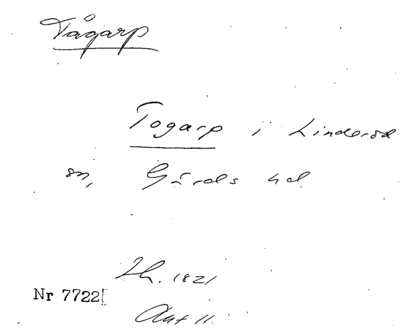 Tågarp
Togarp i Linderöd
sn, Gärds hd
Lh. 1821
Nr 7722
Akt 11.